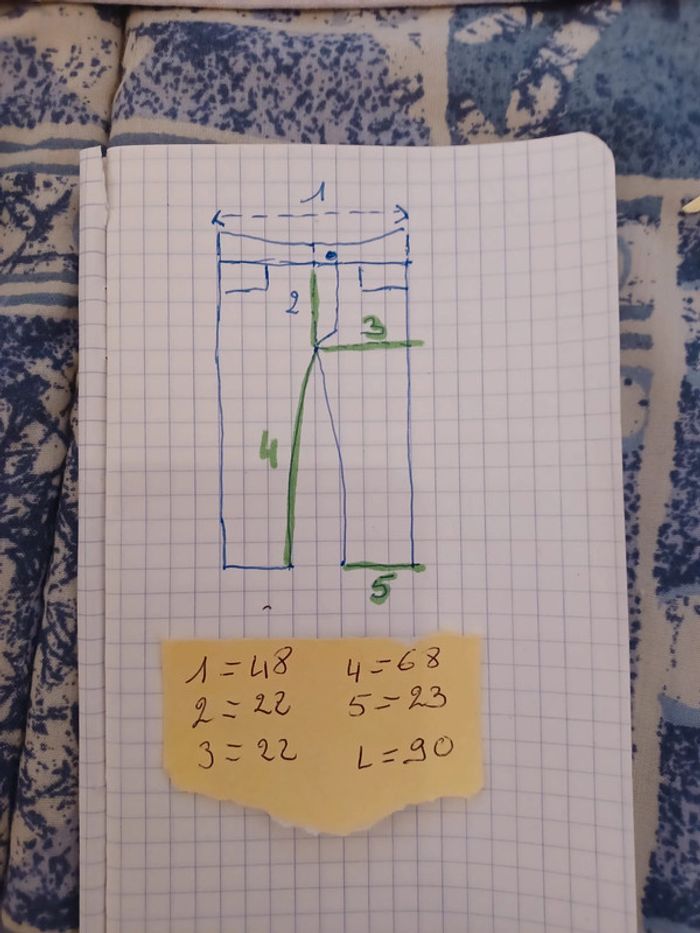 1
2
3
4
5
1=48 4=68
2=22 5=23
3=22 L=90